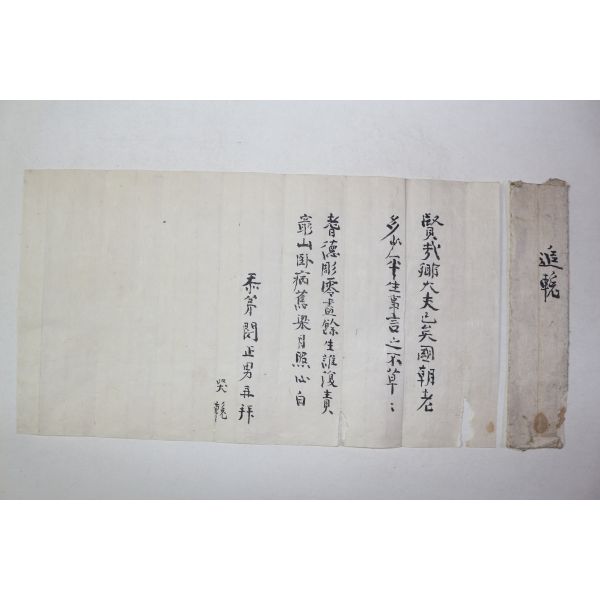 追輓
賢哉鄉大夫已矣國朝老
多少平生事言之不草〻
耆德彫零盡餘生誰復責
龜山卧病舊梁月照心白
忝弟閔正男再拜
哭輓